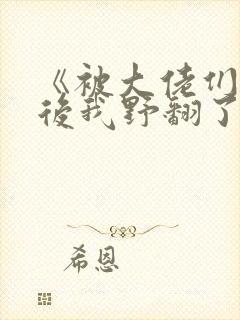 《被大佬们
后我野翻了
希恩